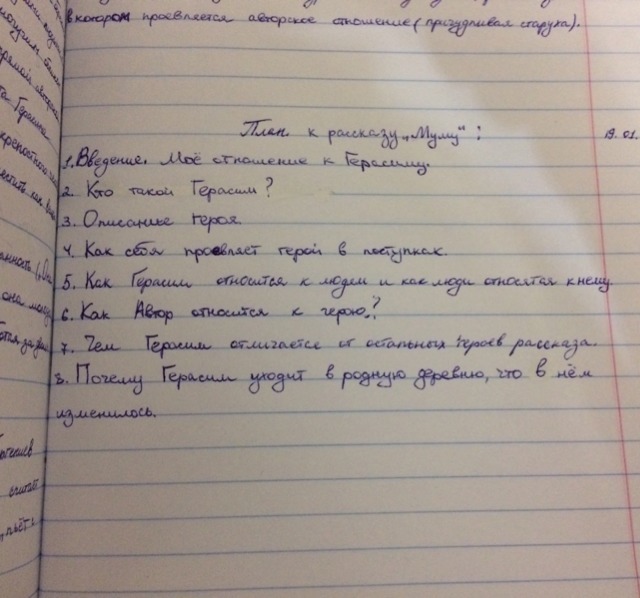 в котором проявляется авторское отношение (причудливая старуха).
План к рассказу „Муму“:
19.01.
1. Введение. Моё отношение к Герасиму.
2. Кто такой Герасим?
3. Описание героя.
4. Как себя проявляет герой в поступках.
5. Как Герасим относится к людям и как люди относятся к нему.
6. Как Автор относится к герою?
7. Чем Герасим отличается от остальных героев рассказа.
8. Почему Герасим уходит в родную деревню, что в нём
изменилось.
Герасима
она
считает